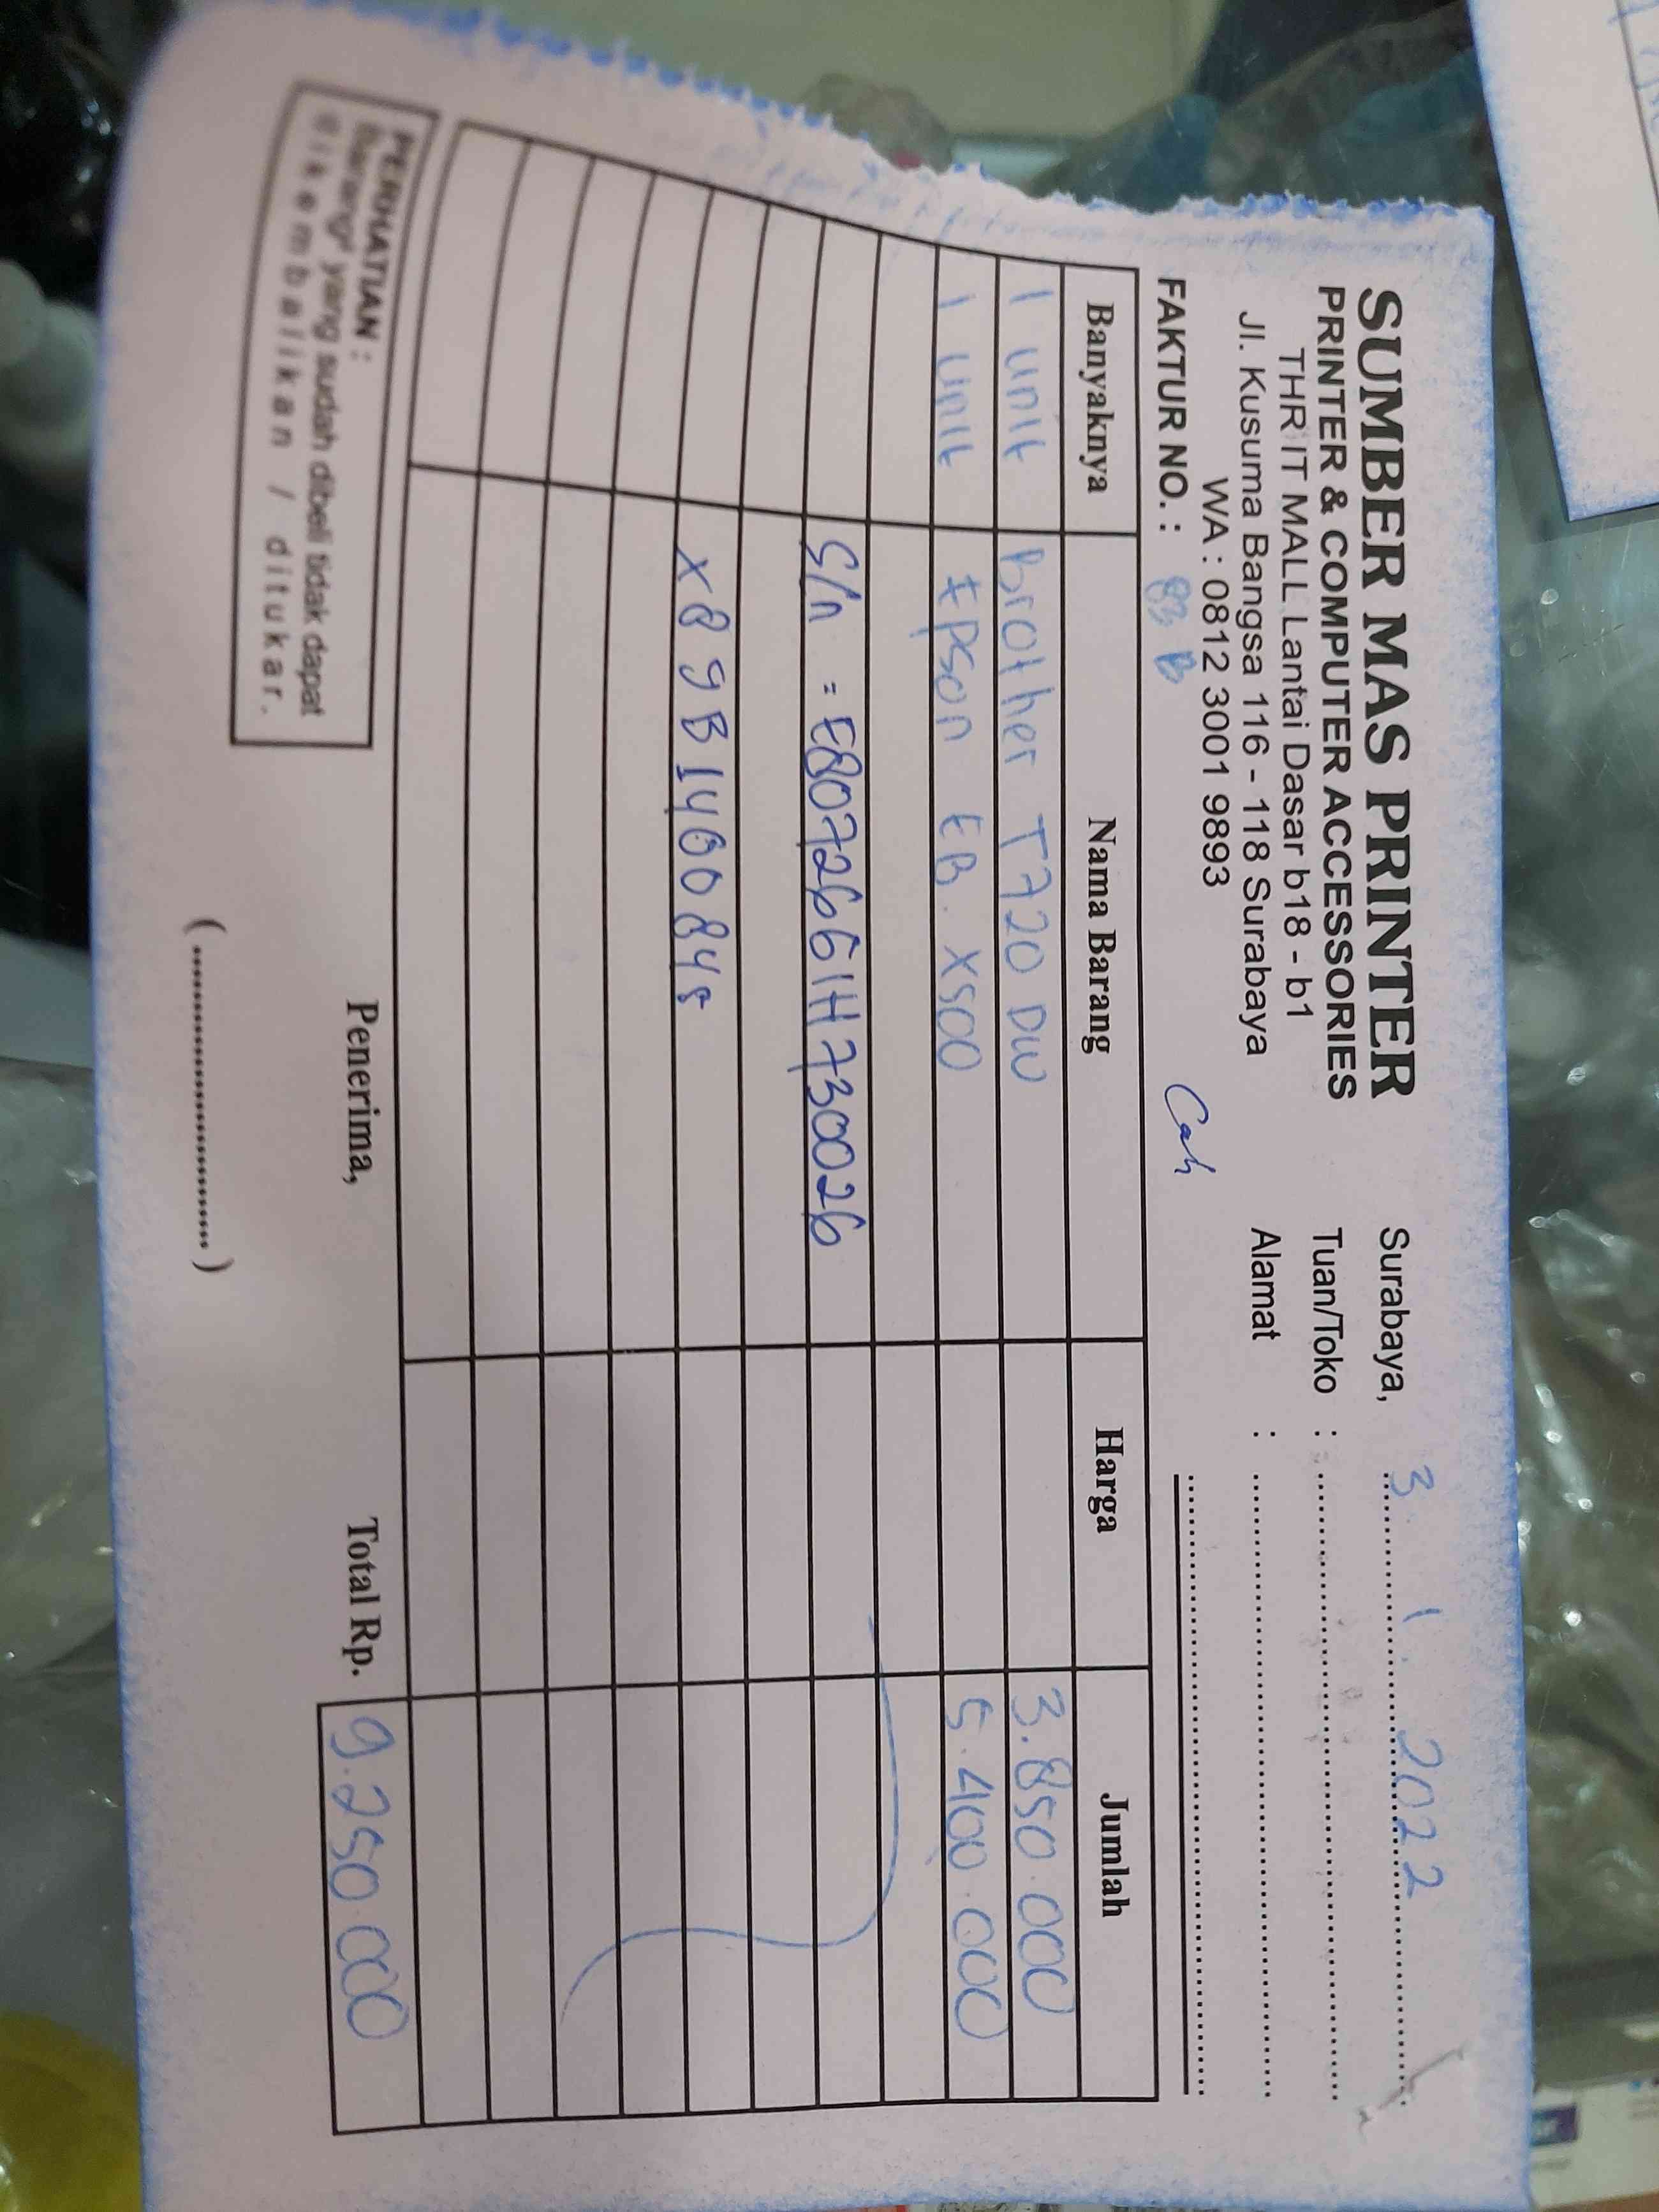 SUMBER MAS PRINTER
PRINTER & COMPUTER ACCESSORIES
THR IT MALL Lantai Dasar b18 - b1
Jl. Kusuma Bangsa 116 - 118 Surabaya
WA : 0812 3001 9893
Surabaya, 3 1 2022
Tuan/Toko :
Alamat :
FAKTUR NO. :
Cash
Banyaknya Nama Barang Harga Jumlah
1 unit Brother T720 DW 3.850.000
1 unit Epson EB. X500 5.400.000
S/n = E80726G1H730026
X89B1400848
PERHATIAN :
Barang² yang sudah dibeli tidak dapat
dikembalikan / ditukar.
Penerima,
(........................)
Total Rp. 9.250.000